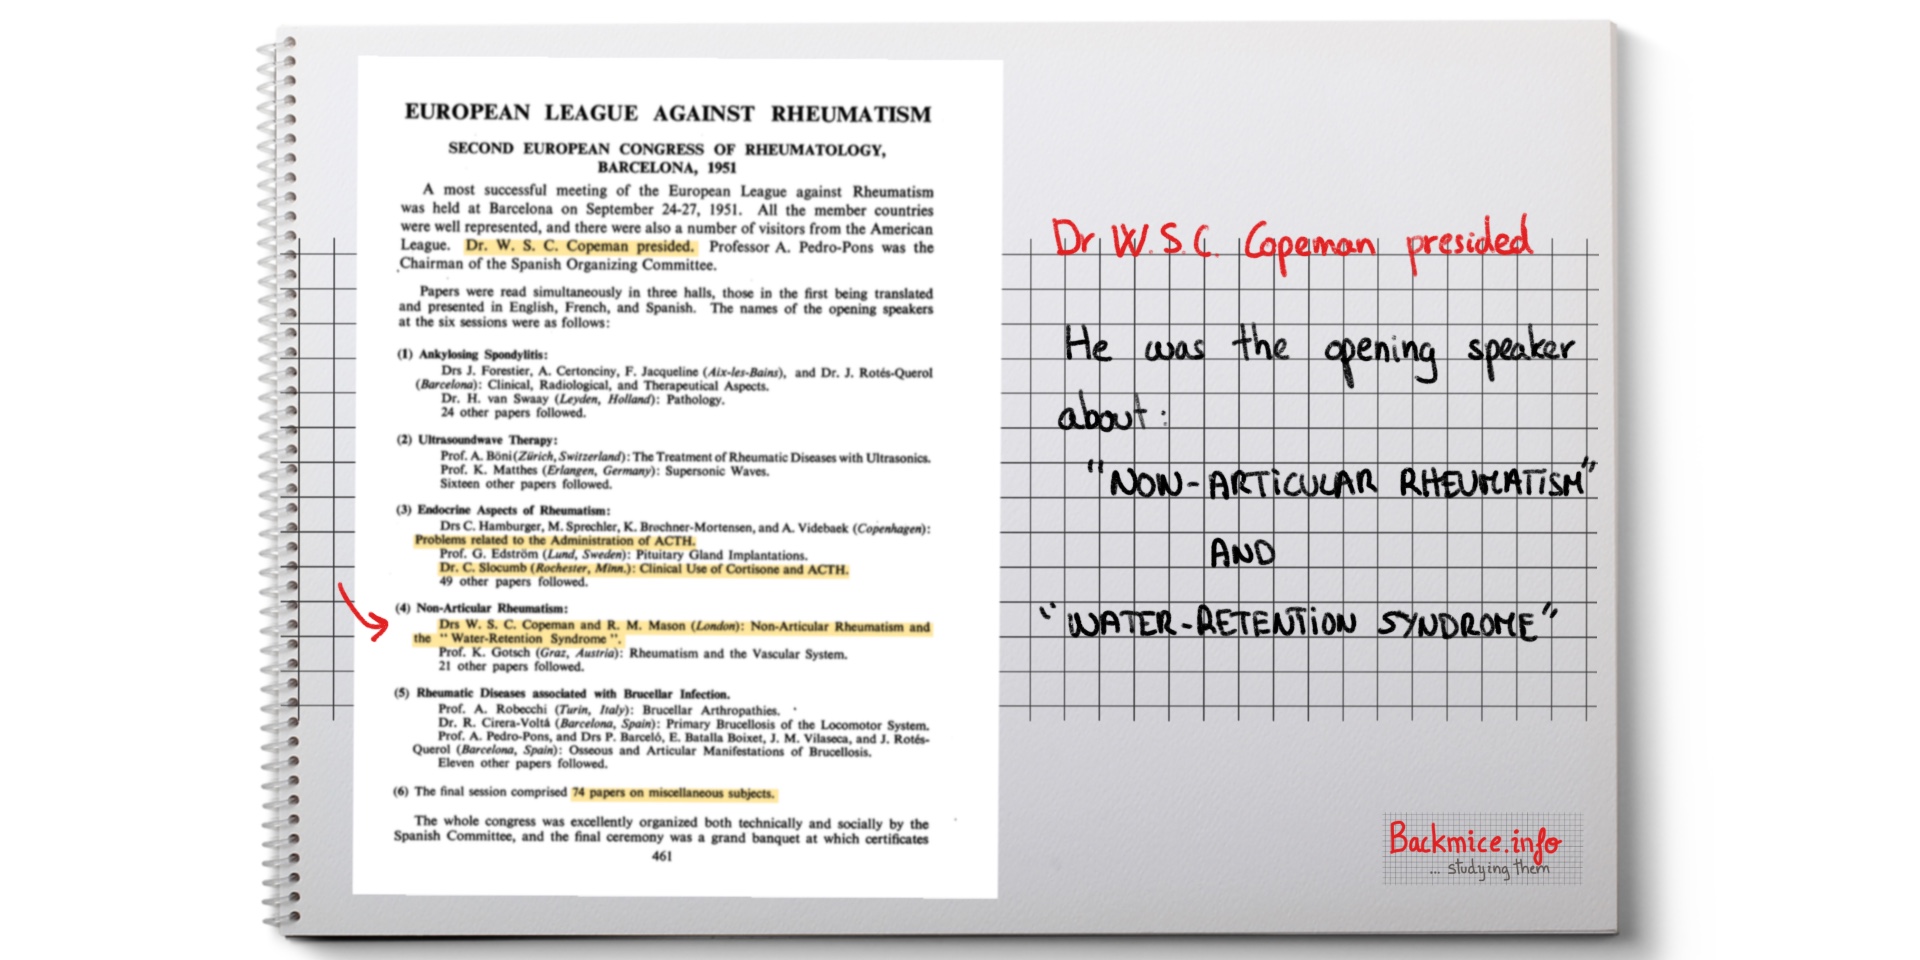 EUROPEAN LEAGUE AGAINST RHEUMATISM
SECOND EUROPEAN CONGRESS OF RHEUMATOLOGY,
BARCELONA, 1951
A most successful meeting of the European League against Rheumatism
was held at Barcelona on September 24-27, 1951. All the member countries
were well represented, and there were also a number of visitors from the American
League. Dr. W. S. C. Copeman presided. Professor A. Pedro-Pons was the
Chairman of the Spanish Organizing Committee.
Papers were read simultaneously in three halls, those in the first being translated
and presented in English, French, and Spanish. The names of the opening speakers
at the six sessions were as follows:
(1) Ankylosing Spondylitis:
Drs J. Forestier, A. Certonciny, F. Jacqueline (Aix-les-Bains), and Dr. J. Rotés-Querol
(Barcelona): Clinical, Radiological, and Therapeutical Aspects.
Dr. H. van Swaay (Leyden, Holland): Pathology.
24 other papers followed.
(2) Ultrasoundwave Therapy:
Prof. A. Böni (Zürich, Switzerland): The Treatment of Rheumatic Diseases with Ultrasonics.
Prof. K. Matthes (Erlangen, Germany): Supersonic Waves.
Sixteen other papers followed.
(3) Endocrine Aspects of Rheumatism:
Drs C. Hamburger, M. Sprechler, K. Brochner-Mortensen, and A. Videbaek (Copenhagen):
Problems related to the Administration of ACTH.
Prof. G. Edström (Lund, Sweden): Pituitary Gland Implantations.
Dr. C. Slocumb (Rochester, Minn.): Clinical Use of Cortisone and ACTH.
49 other papers followed.
(4) Non-Articular Rheumatism:
Drs W. S. C. Copeman and R. M. Mason (London): Non-Articular Rheumatism and
the "Water-Retention Syndrome".
Prof. K. Gotsch (Graz, Austria): Rheumatism and the Vascular System.
21 other papers followed.
(5) Rheumatic Diseases associated with Brucellar Infection.
Prof. A. Robecchi (Turin, Italy): Brucellar Arthropathies.
Dr. R. Cirera-Voltá (Barcelona, Spain): Primary Brucellosis of the Locomotor System.
Prof. A. Pedro-Pons, and Drs P. Barceló, E. Batalla Boixet, J. M. Vilaseca, and J. Rotés-
Querol (Barcelona, Spain): Osseous and Articular Manifestations of Brucellosis.
Eleven other papers followed.
(6) The final session comprised 74 papers on miscellaneous subjects.
The whole congress was excellently organized both technically and socially by the
Spanish Committee, and the final ceremony was a grand banquet at which certificates
461
Dr W.S.C. Copeman presided
He was the opening speaker
about:
"NON-ARTICULAR RHEUMATISM"
AND
"WATER-RETENTION SYNDROME"
Backmice.info
... studying them